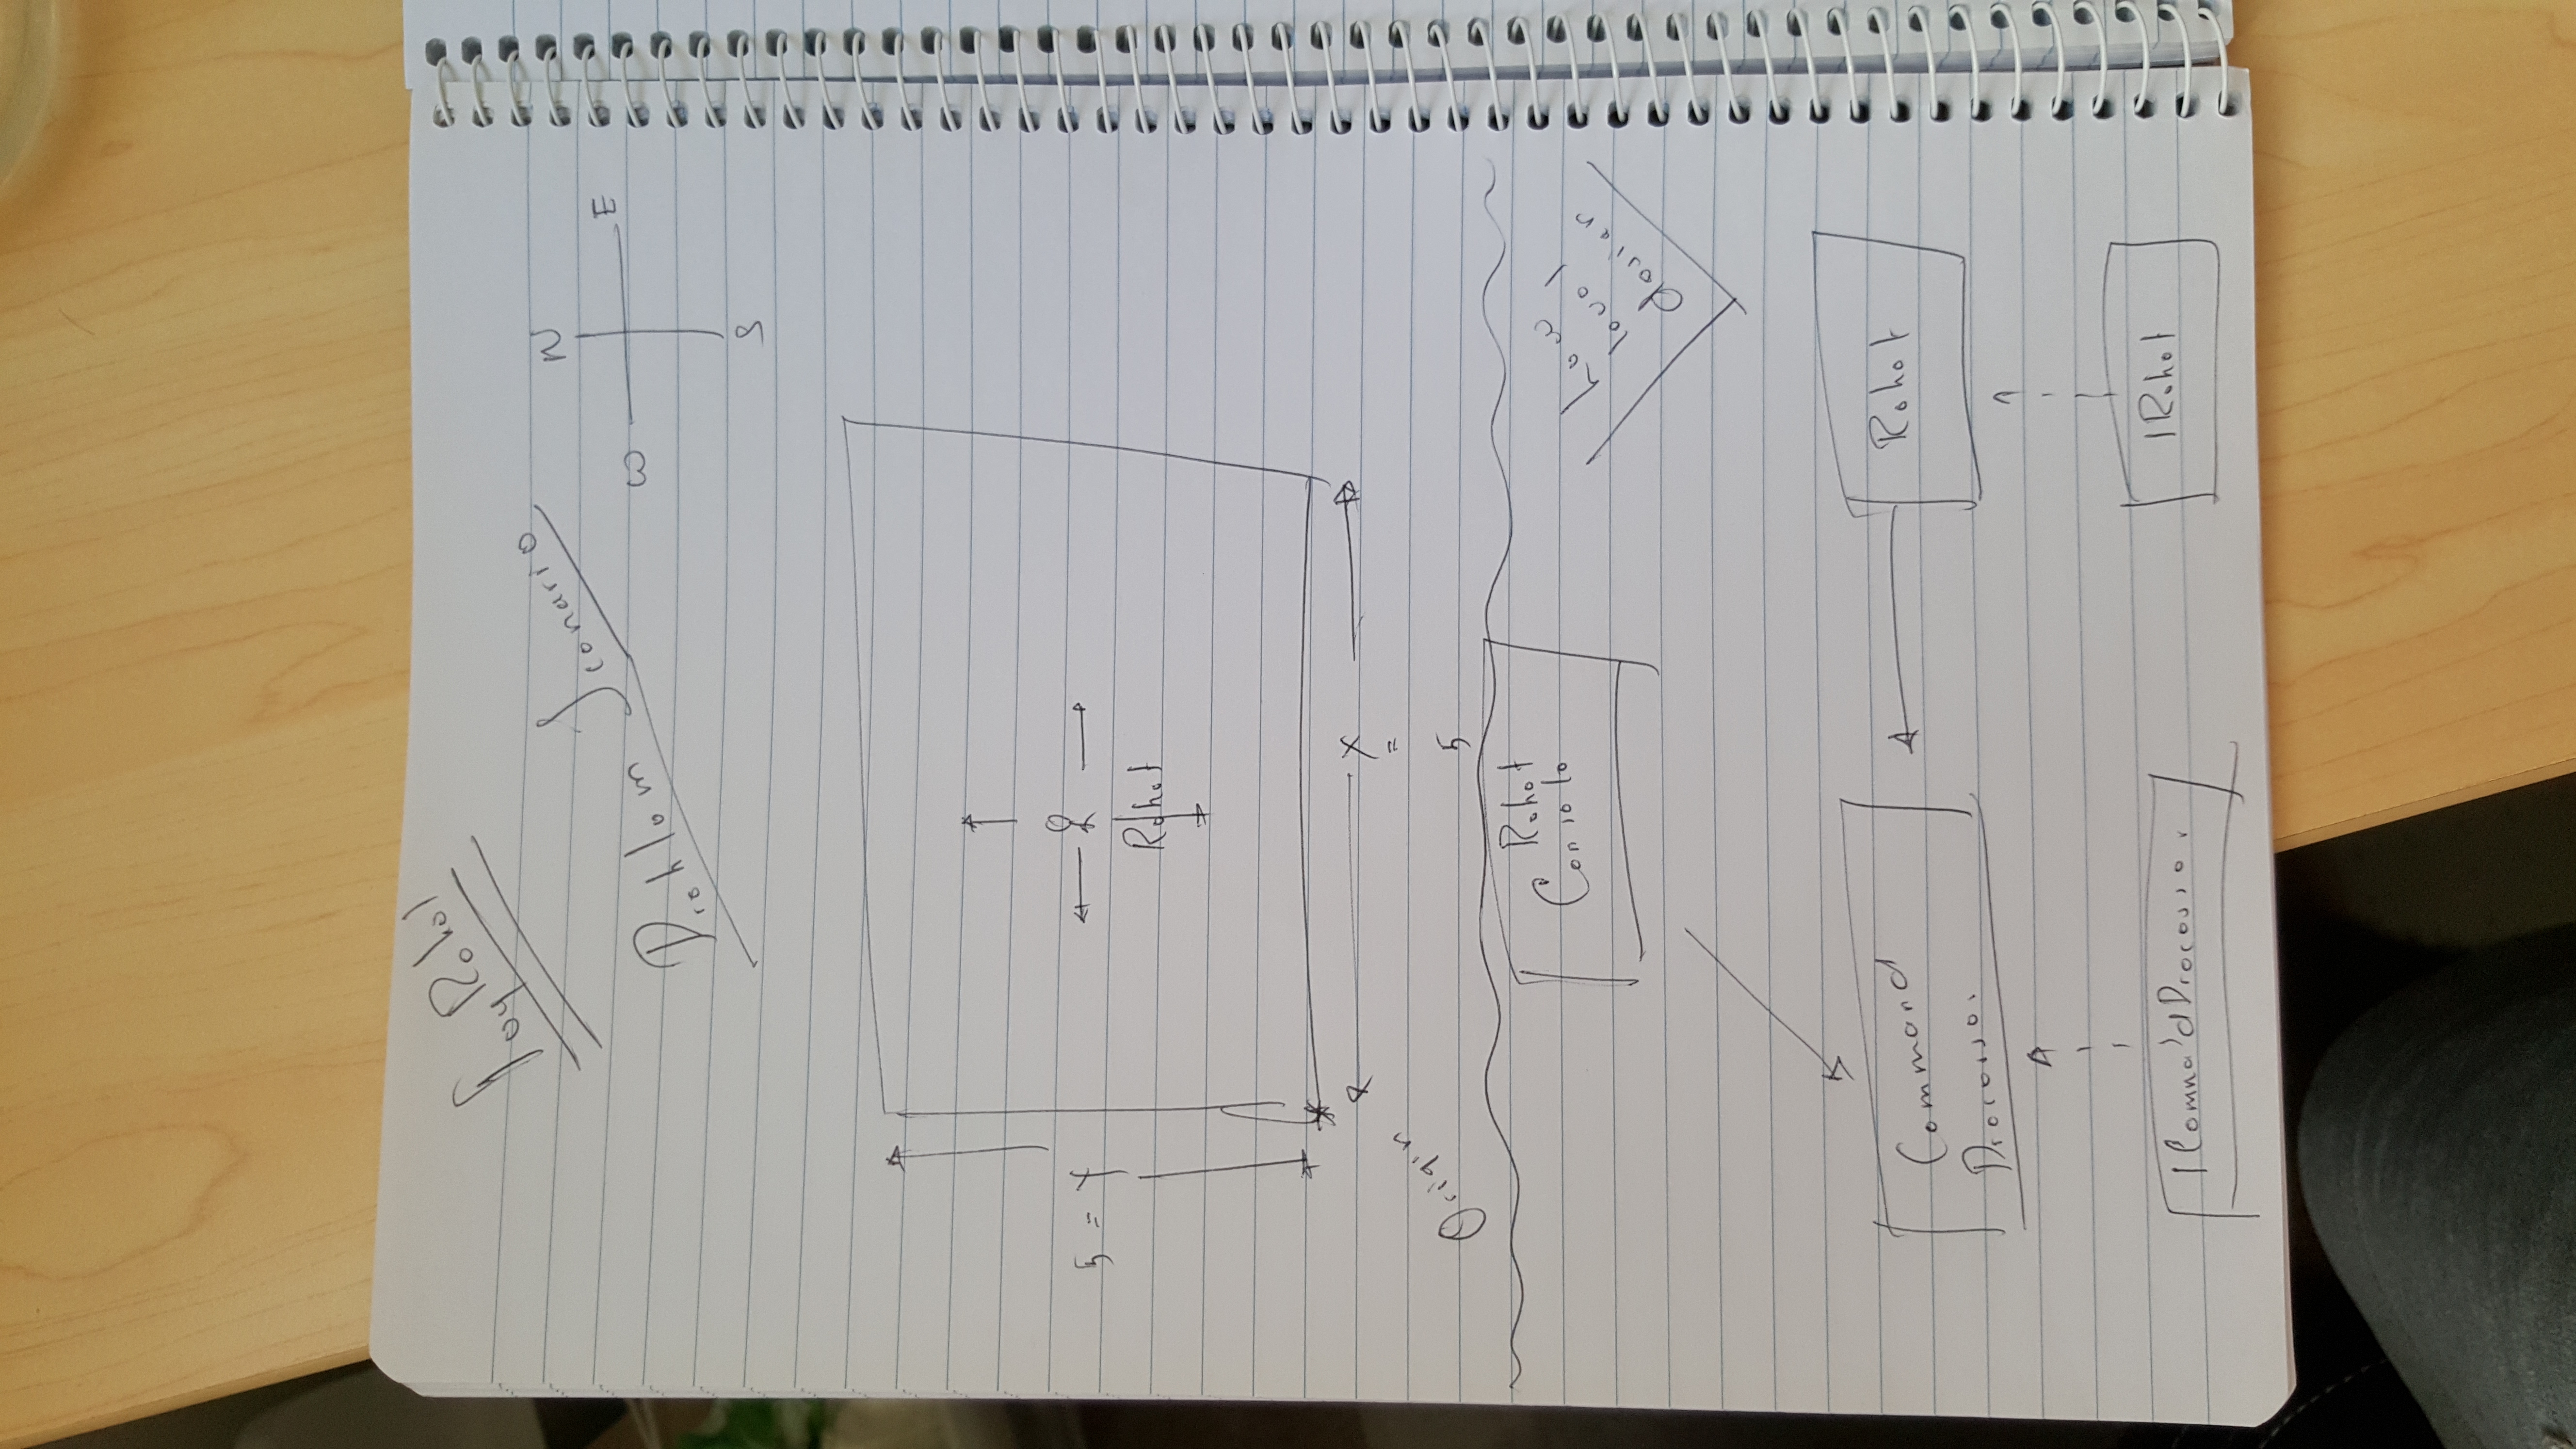 Toy Robot
Problem Scenario
N
W E
S
5 = Y
Robot
X
=
5
Origin
Robot
Console
Low
level
design
Command
Processor
Robot
ICommandProcessor
IRobot